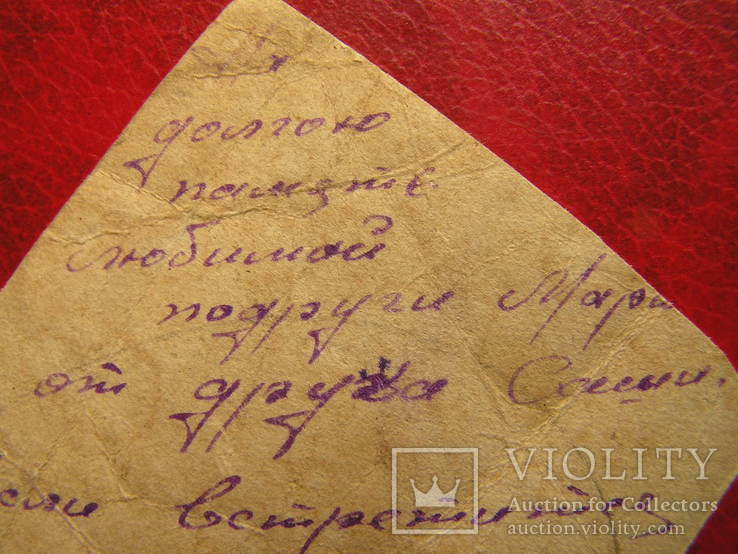 долгою
память
любимой
подруги
от друга Саши.
встретится
VIOLITY
Auction for Collectors
auction.violity.com